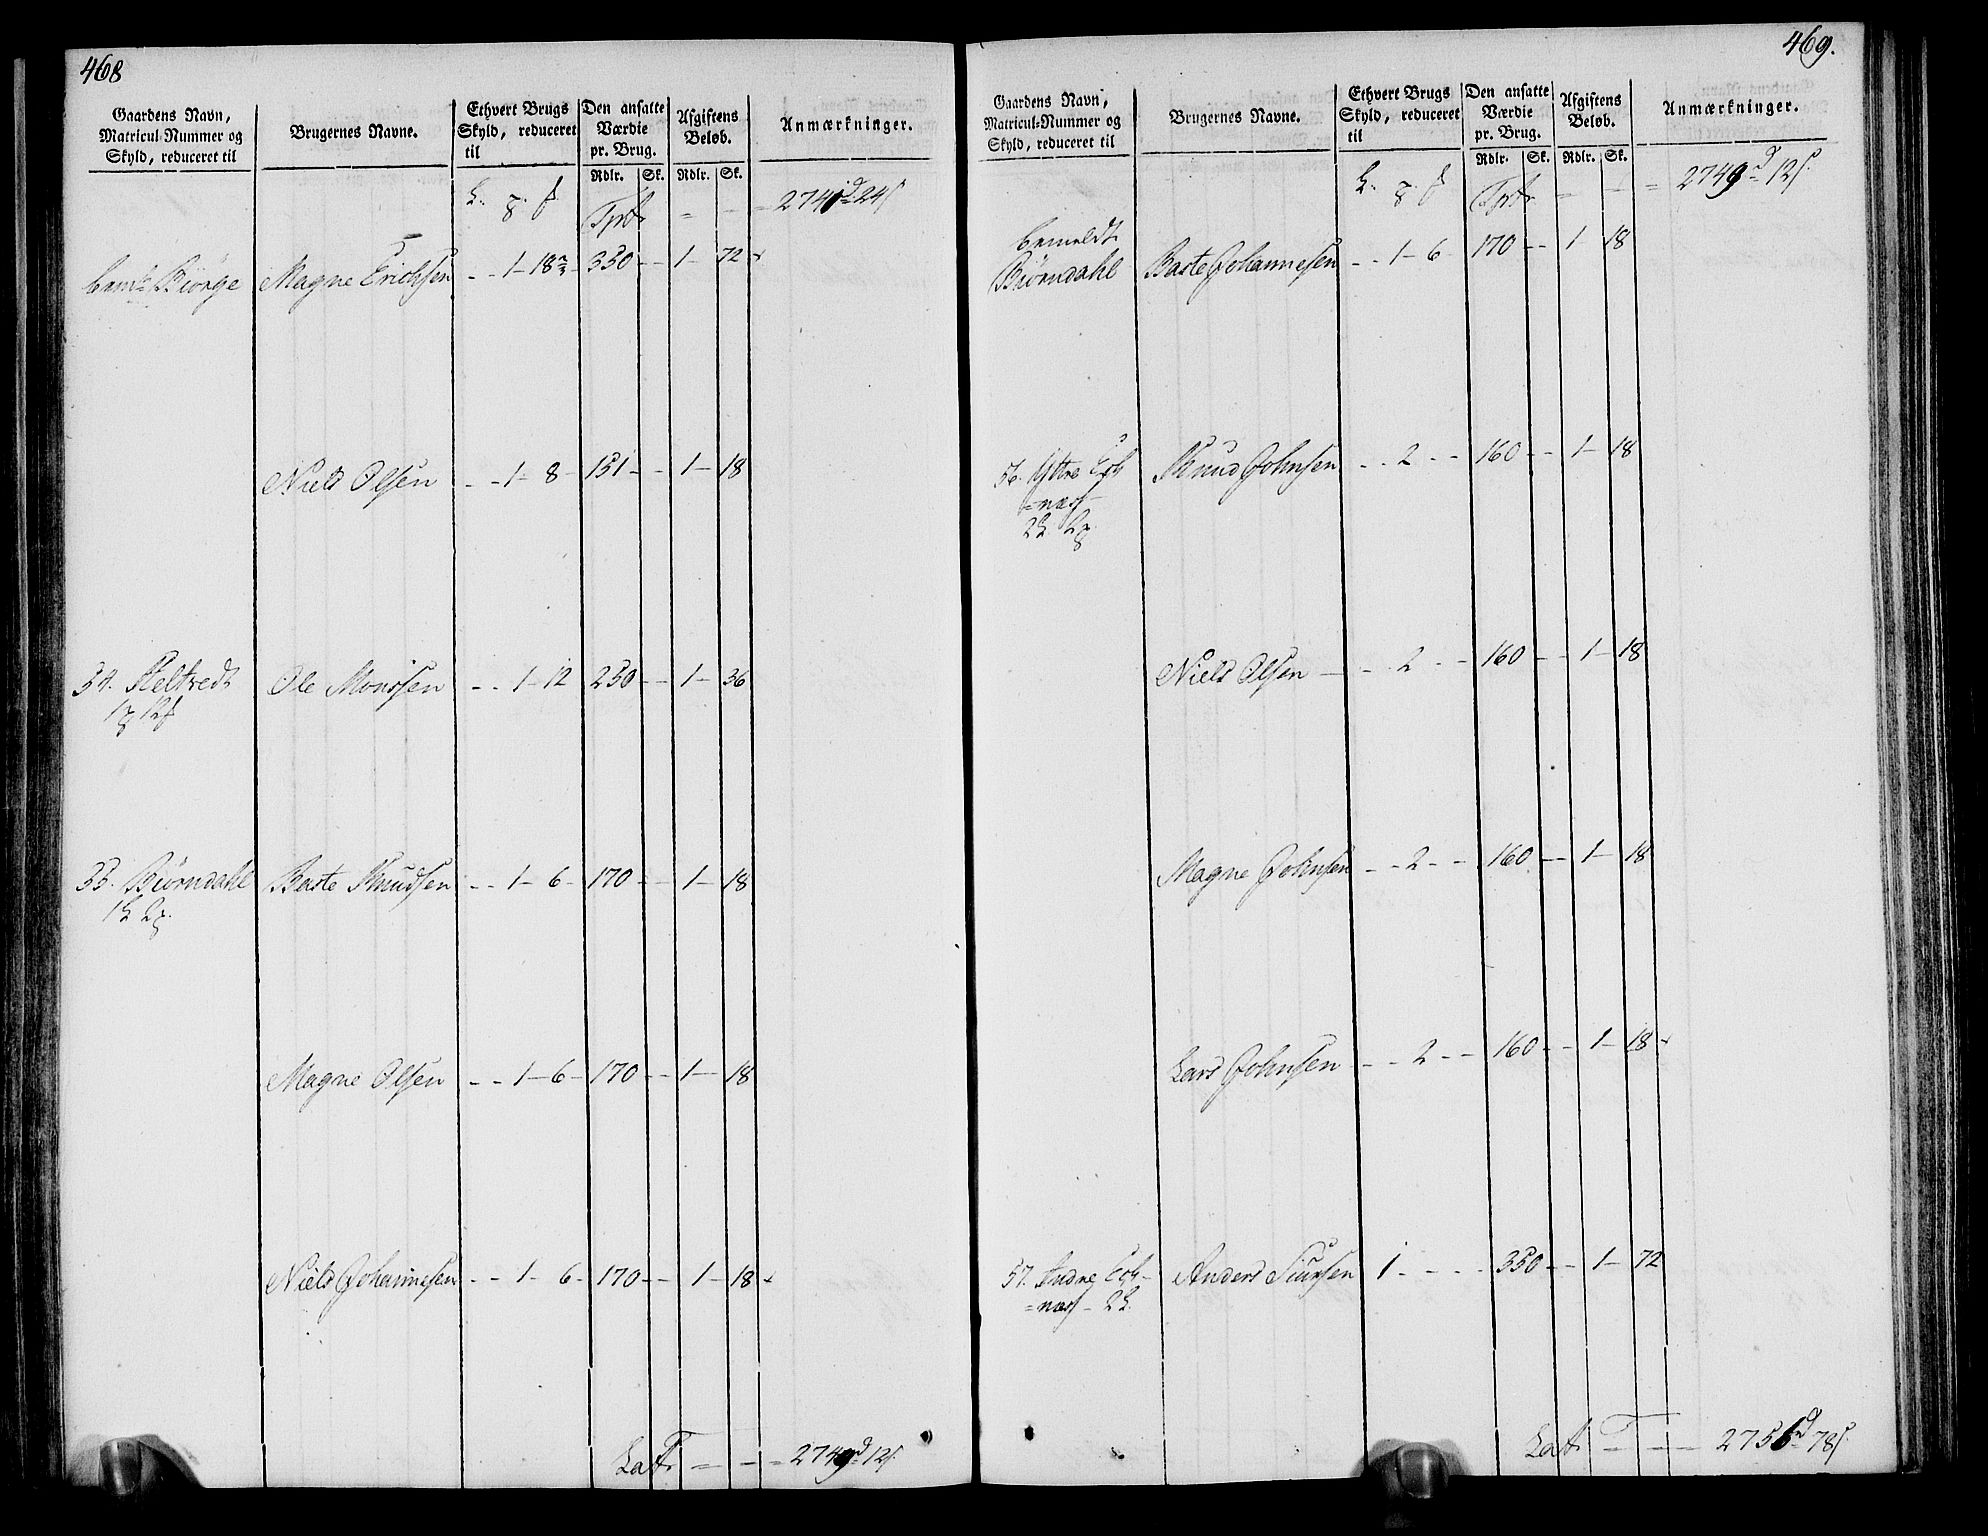 468
Gaardens Navn, Matricul-Nummer og Skyld, reduceret til
Brugernes Navne.
Ethvert Brugs Skyld, reduceret til
Den ansatte Værdie pr. Brug.
Afgiftens Beløb.
Anmærkninger.
Rdlr. Sk. Rdlr. Sk.
Tprt - - - 2741 d 24 s
bem.te Biørge Magne Erichsen - - 1 - 18 2/3 - 350 - - 1 - 72
Niels Olsen - - 1 - 8 - 151 - - 1 - 18
54. Heltvedt Ole Monssen - - 1 - 12 250 - - 1 - 36
55. Biørndahl Baste Knudsen - - 1 - 6 - 170 - - 1 - 18
Magne Olsen - - 1 - 6 - 170 - - 1 - 18
Niels Johannesen - - 1 - 6 - 170 - - 1 - 18
Latr - - = 2749 d 12 s
469.
Gaardens Navn, Matricul-Nummer og Skyld, reduceret til
Brugernes Navne.
Ethvert Brugs Skyld, reduceret til
Den ansatte Værdie pr. Brug.
Afgiftens Beløb.
Anmærkninger.
Rdlr. Sk. Rdlr. Sk.
Tprt - - = 2749 d 12 s
bemeldt
Biørndahl Baste Johannesen - - 1 - 6 - 170 - - 1 - 18
56. Yttre
Knud Johnsen - - 2 - - 160 - - 1 - 18
=næs
Niels Olsen - - 2 - - 160 - - 1 - 18
Magne Johnsen - - 2 - - 160 - - 1 - 18
Lars Johnsen - - 2 - - 160 - - 1 - 18
57. Indre
Anders Siursen 1 - - - 350 - - 1 - 72
=næs
Latr - - - 2756 d 78 s